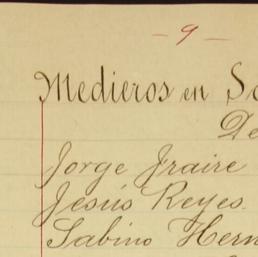 - 9 -
Medieros en
De
Jorge Fraire
Jesús Reyes.
Sabino